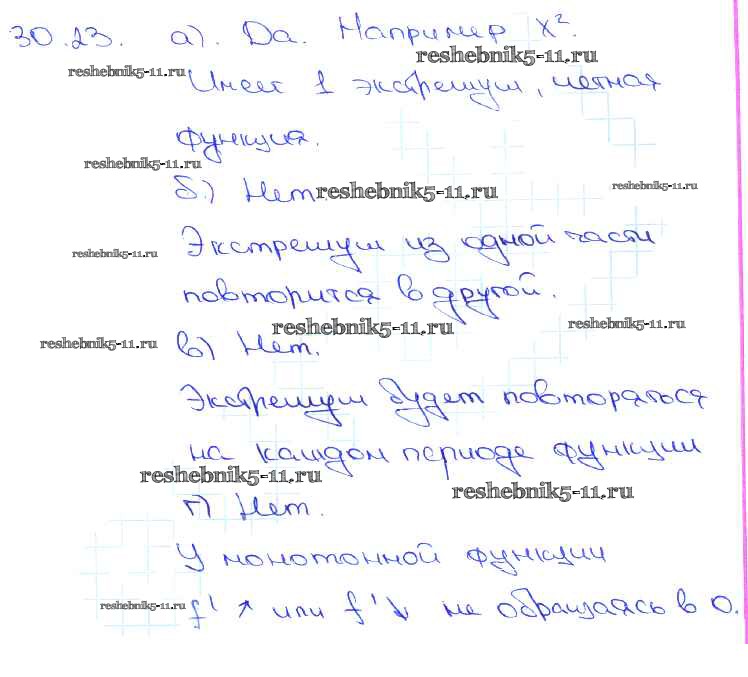 30.23. а). Да. Например x².
reshebnik5-11.ru
reshebnik5-11.ru
Имеет 1 экстремум, четная
функция.
reshebnik5-11.ru
б.) Нет.
reshebnik5-11.ru
reshebnik5-11.ru
Экстремум из одной части
reshebnik5-11.ru
повторится в другой.
reshebnik5-11.ru
reshebnik5-11.ru
reshebnik5-11.ru
в) Нет.
Экстремум будет повторяться
на каждом периоде функции
reshebnik5-11.ru
reshebnik5-11.ru
г) Нет.
У монотонной функции
reshebnik5-11.ru
f' ↗ или f' ↘ не обращаясь в 0.